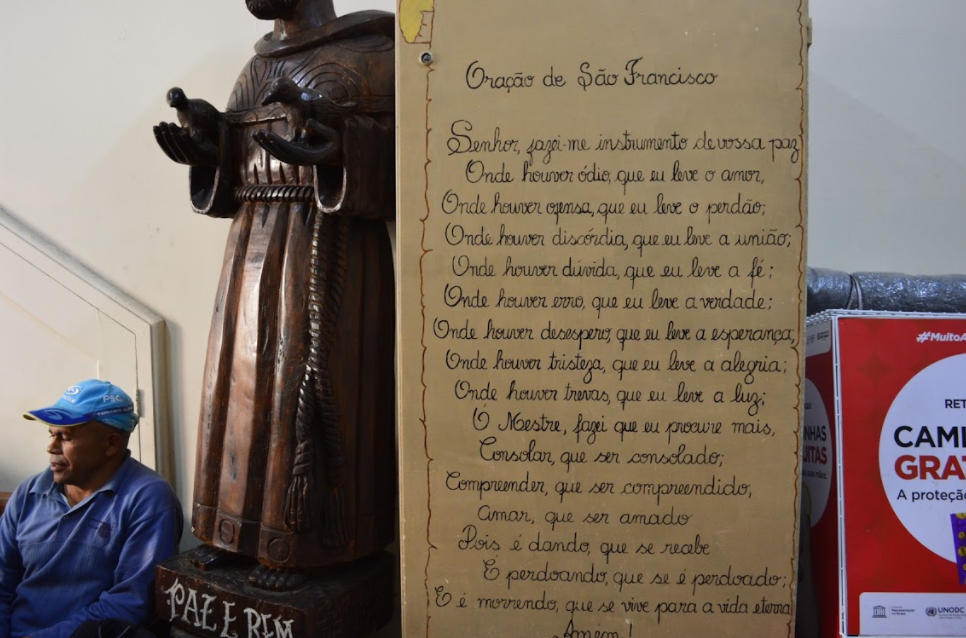 Oração de São Francisco
Senhor, fazei-me instrumento de vossa paz
Onde houver ódio, que eu leve o amor,
Onde houver ofensa, que eu leve o perdão;
Onde houver discórdia, que eu leve a união;
Onde houver dúvida, que eu leve a fé;
Onde houver erro, que eu leve a verdade;
Onde houver desespero, que eu leve a esperança,
Onde houver tristeza, que eu leve a alegria;
Onde houver trevas, que eu leve a luz;
Ó Mestre, fazei que eu procure mais,
Consolar, que ser consolado;
Compreender, que ser compreendido,
Amar, que ser amado
Pois é dando, que se recebe
É perdoando, que se é perdoado;
E é morrendo, que se vive para a vida eterna
Amem!
PAZ E BEM
PSC
#MuitoA
RET
CAMI
GRAT
A proteção
NHAS
UITAS
UNODC